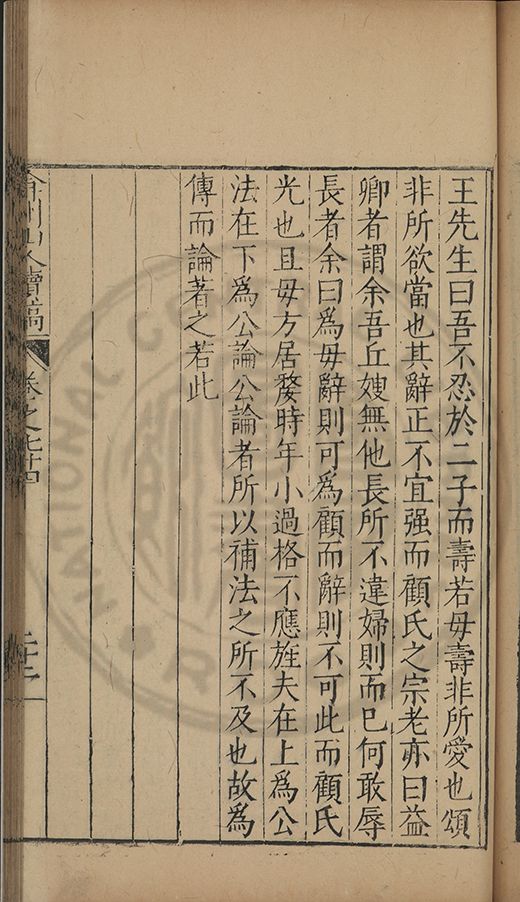 王先生曰吾不忍於二子而壽若毋壽非所愛也頌
非所欲當也其辭正不宜强而顧氏之宗老亦曰益
卿者謂余吾丘嫂無他長所不違婦則而已何敢辱
長者余曰爲毋辭則可爲顧而辭則不可此而顧氏
光也且毋方居嫠時年小過格不應旌夫在上爲公
法在下爲公論公論者所以補法之所不及也故爲
傳而論著之若此
弇州山人續稿
卷之七十四